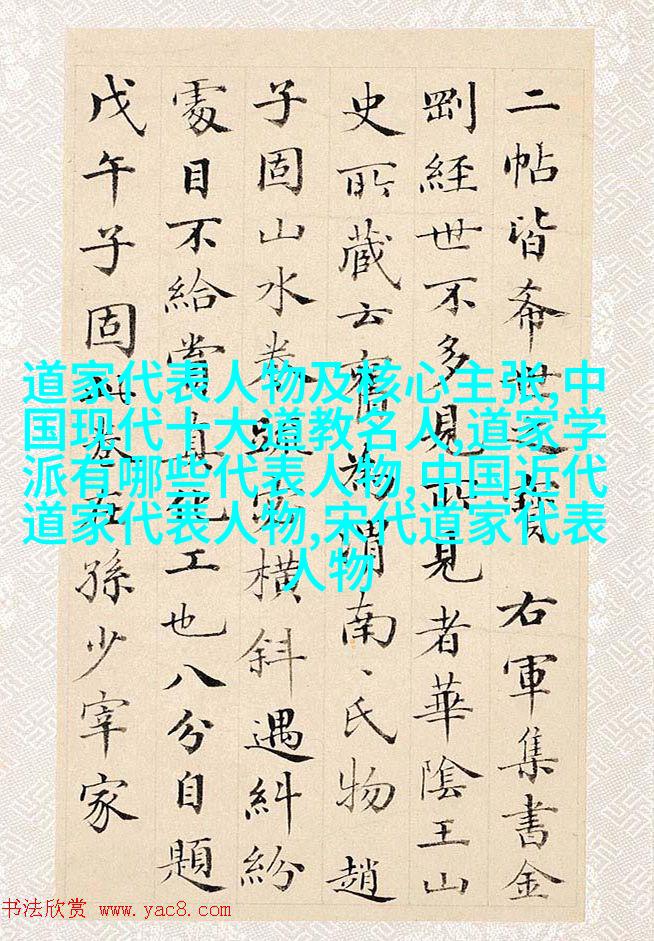 二帖皆希世之寶 右軍集書金
剛經世不多見所見者華陰王山
史所藏云舊為渭南、氏物趙
子固山水卷踈密橫斜遇糾紛
處目不給賞真化工也八分自題
戊午子固卷在孫少宰家
道家代表人物及核心主张,中
国现代十大道教名人,道家学
派有哪些代表人物,中国近代
道家代表人物,宋代道家代表
人物
书法欣赏 www.yac8.com